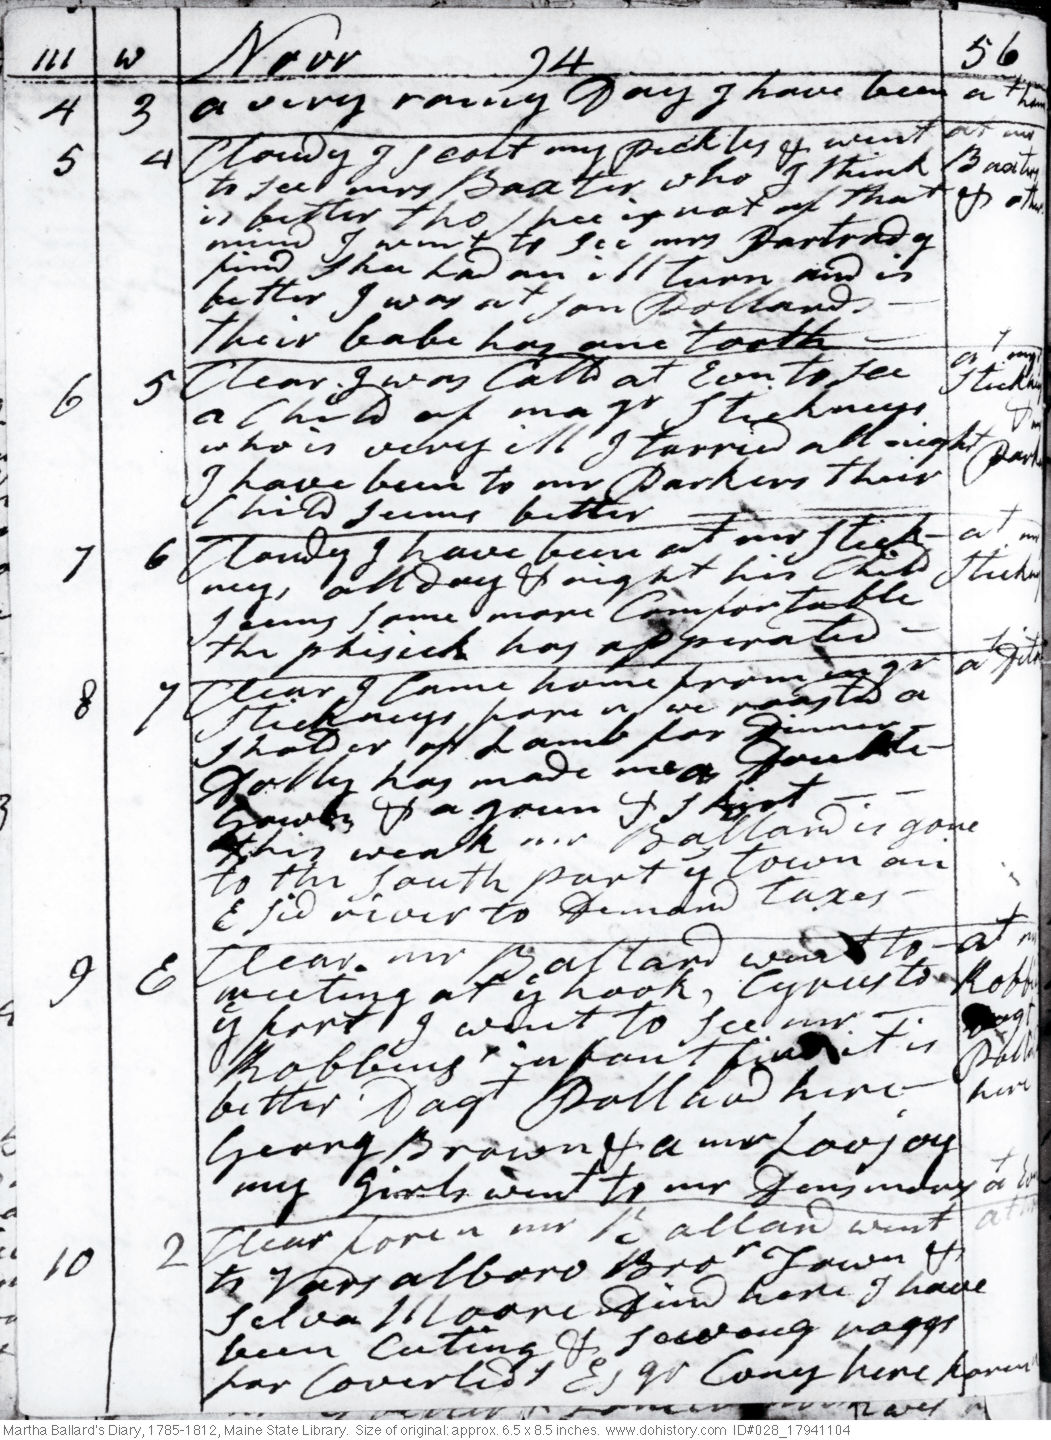 111 w Novr 94 56
4 3 a very rainy Day I have been a t hom
5 4 Cloudy I scolt my pickles & went at mr
to see mrs Baxter who I think Baxters
is better tho shee is not of that & other
mind I went to see mrs Partradg
find shee had an ill turn and is
better I was at Jon Pollards
their babe has one tooth
6 5 Clear. I was Calld at Evn. to see at majr
a Child of majr Stickneys Stickneys
who is very ill I tarried all night &
I have been to mr Parkers their Park
Child seems better
7 6 Cloudy I have been at mr Stick- at mr
neys, all day & night his Child Stickney
seems some more Comfortable
the phisick has opperated
8 7 Clear I Came home from majr at Ditto
Stickneys fore n, we roasted a
sholder of Lamb for Dinner
Dolly has made me a Double
Gown & a goun & skirt
this weak mr Ballard is gone
to the south part y town on
E Sid river to Demand taxes
9 E Clear. mr Ballard went to at mr
meeting at ye hook, Cyrus to Robbins
ye fort I went to see mr
Robbins' infant find it is
better Dagt Pollard here here
Georg Brown & a mr Lovjoy
my Girls went to mr Densmores at Evn
10 2 Clear foren mr Ballard went at
to Varsalboro Bror Town &
Selva Moore Dind here I have
been Cuting & sewing raggs
for Coverlids Esqr Cony here foren
Martha Ballard's Diary, 1785-1812, Maine State Library. Size of original:approx. 6.5 x 8.5 inches. www.dohistory.com ID#028_17941104